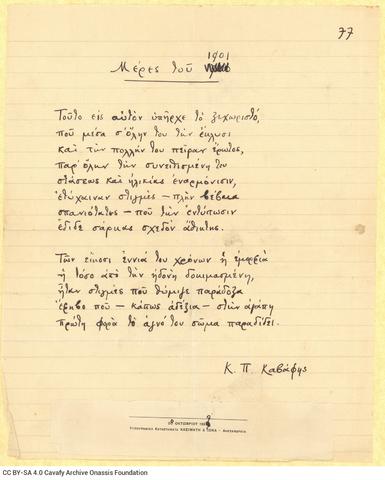 77
1901
Μέρες τοῦ
Τοῦτο εἰς αὐτὸν ὑπῆρχε τὸ ξεχωριστό,
ποὺ μέσα σ' ὅλην του τὴν ἔκλυσι
καὶ τὴν πολλήν του πεῖραν ἔρωτος,
παρ' ὅλην τὴν συνειθισμένη του
στάσεως καὶ ἡλικίας ἐναρμόνισιν,
ἐτύχαιναν στιγμές — πλὴν βέβαια
σπανιότατες — ποὺ τὴν ἐντύπωσιν
ἔδιδε σάρκας σχεδὸν ἄθικτης.
Τῶν εἴκοσι ἐννιά του χρόνων ἡ ἐμορφιὰ
ἡ τόσο ἀπὸ τὴν ἡδονὴ δοκιμασμένη,
ἦταν στιγμὲς ποὺ θύμιζε παράδοξα
ἔφηβο ποὺ — κάπως ἀδέξια — στὴν ἀγάπη
πρώτη φορὰ τὸ ἁγνό του σῶμα παραδίδει.
Κ. Π. Καβάφης
ΟΚΤΩΒΡΙΟΥ
ΤΥΠΟΓΡΑΦΙΚΑ ΚΑΤΑΣΤΗΜΑΤΑ ΚΑΣΙΜΑΤΗ & ΙΩΝΑ - ΑΛΕΞΑΝΔΡΕΙΑ
CC BY-SA 4.0 Cavafy Archive Onassis Foundation